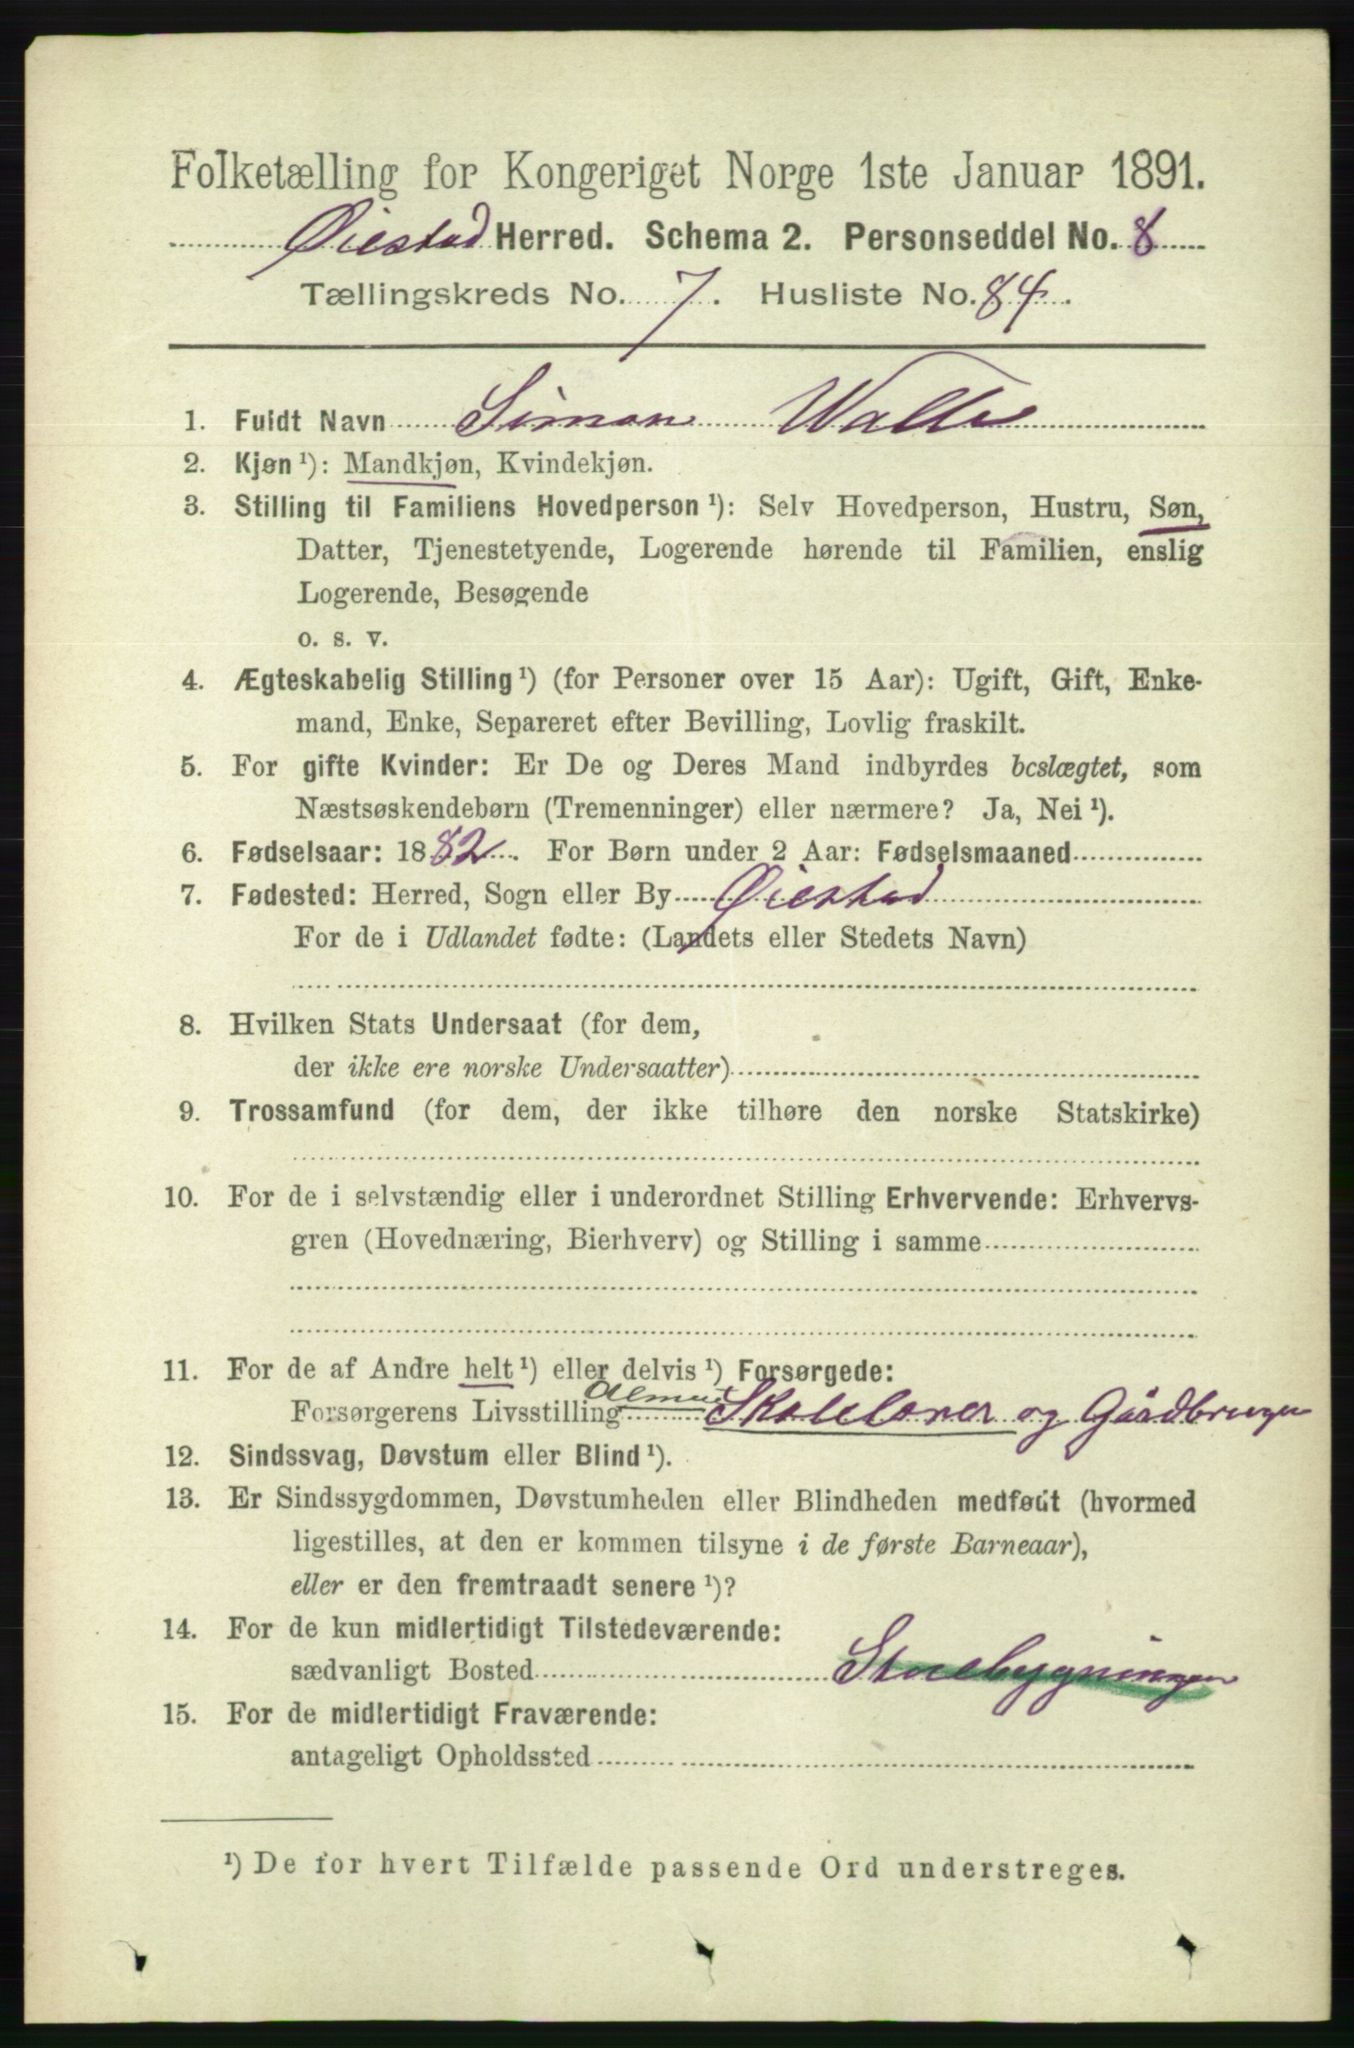 Folketælling for Kongeriget Norge 1ste Januar 1891.
Øiestad Herred. Schema 2. Personseddel No. 8
Tællingskreds No. 7. Husliste No. 84.
1. Fuldt Navn Simon
2. Kjøn ¹): Mandkjøn, Kvindekjøn.
3. Stilling til Familiens Hovedperson ¹): Selv Hovedperson, Hustru, Søn,
Datter, Tjenestetyende, Logerende hørende til Familien, enslig
Logerende, Besøgende
o. s. v.
4. Ægteskabelig Stilling ¹) (for Personer over 15 Aar): Ugift, Gift, Enke-
mand, Enke, Separeret efter Bevilling, Lovlig fraskilt.
5. For gifte Kvinder: Er De og Deres Mand indbyrdes beslægtet, som
Næstsøskendebørn (Tremenninger) eller nærmere? Ja, Nei ¹).
6. Fødselsaar: 1882. For Børn under 2 Aar: Fødselsmaaned
7. Fødested: Herred, Sogn eller By Øiestad
For de i Udlandet fødte: (Landets eller Stedets Navn)
8. Hvilken Stats Undersaat (for dem,
der ikke ere norske Undersaatter)
9. Trossamfund (for dem, der ikke tilhøre den norske Statskirke)
10. For de i selvstændig eller i underordnet Stilling Erhvervende: Erhvervs-
gren (Hovednæring, Bierhverv) og Stilling i samme
11. For de af Andre helt ¹) eller delvis ¹) Forsørgede:
Forsørgerens Livsstilling Skolelærer og Gårdbruger
12. Sindssvag, Døvstum eller Blind ¹).
13. Er Sindssygdommen, Døvstumheden eller Blindheden medfødt (hvormed
ligestilles, at den er kommen tilsyne i de første Barneaar),
eller er den fremtraadt senere ¹)?
14. For de kun midlertidigt Tilstedeværende:
sædvanligt Bosted Stuebygningen
15. For de midlertidigt Fraværende:
antageligt Opholdssted
¹) De for hvert Tilfælde passende Ord understreges.